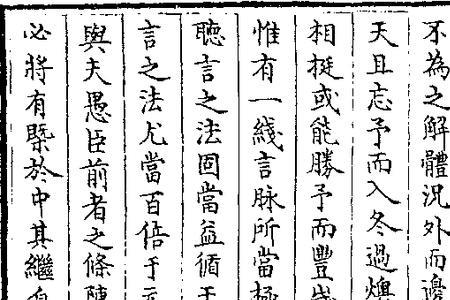 不為之解體況外而邊
天且忘予而入冬過燠
相挺或能勝予而豐
惟有一綫言脉所當極
聽言之法固當益循于
言之法尤當百倍于
與夫愚臣前者之條陳
必將有槩於中其繼自